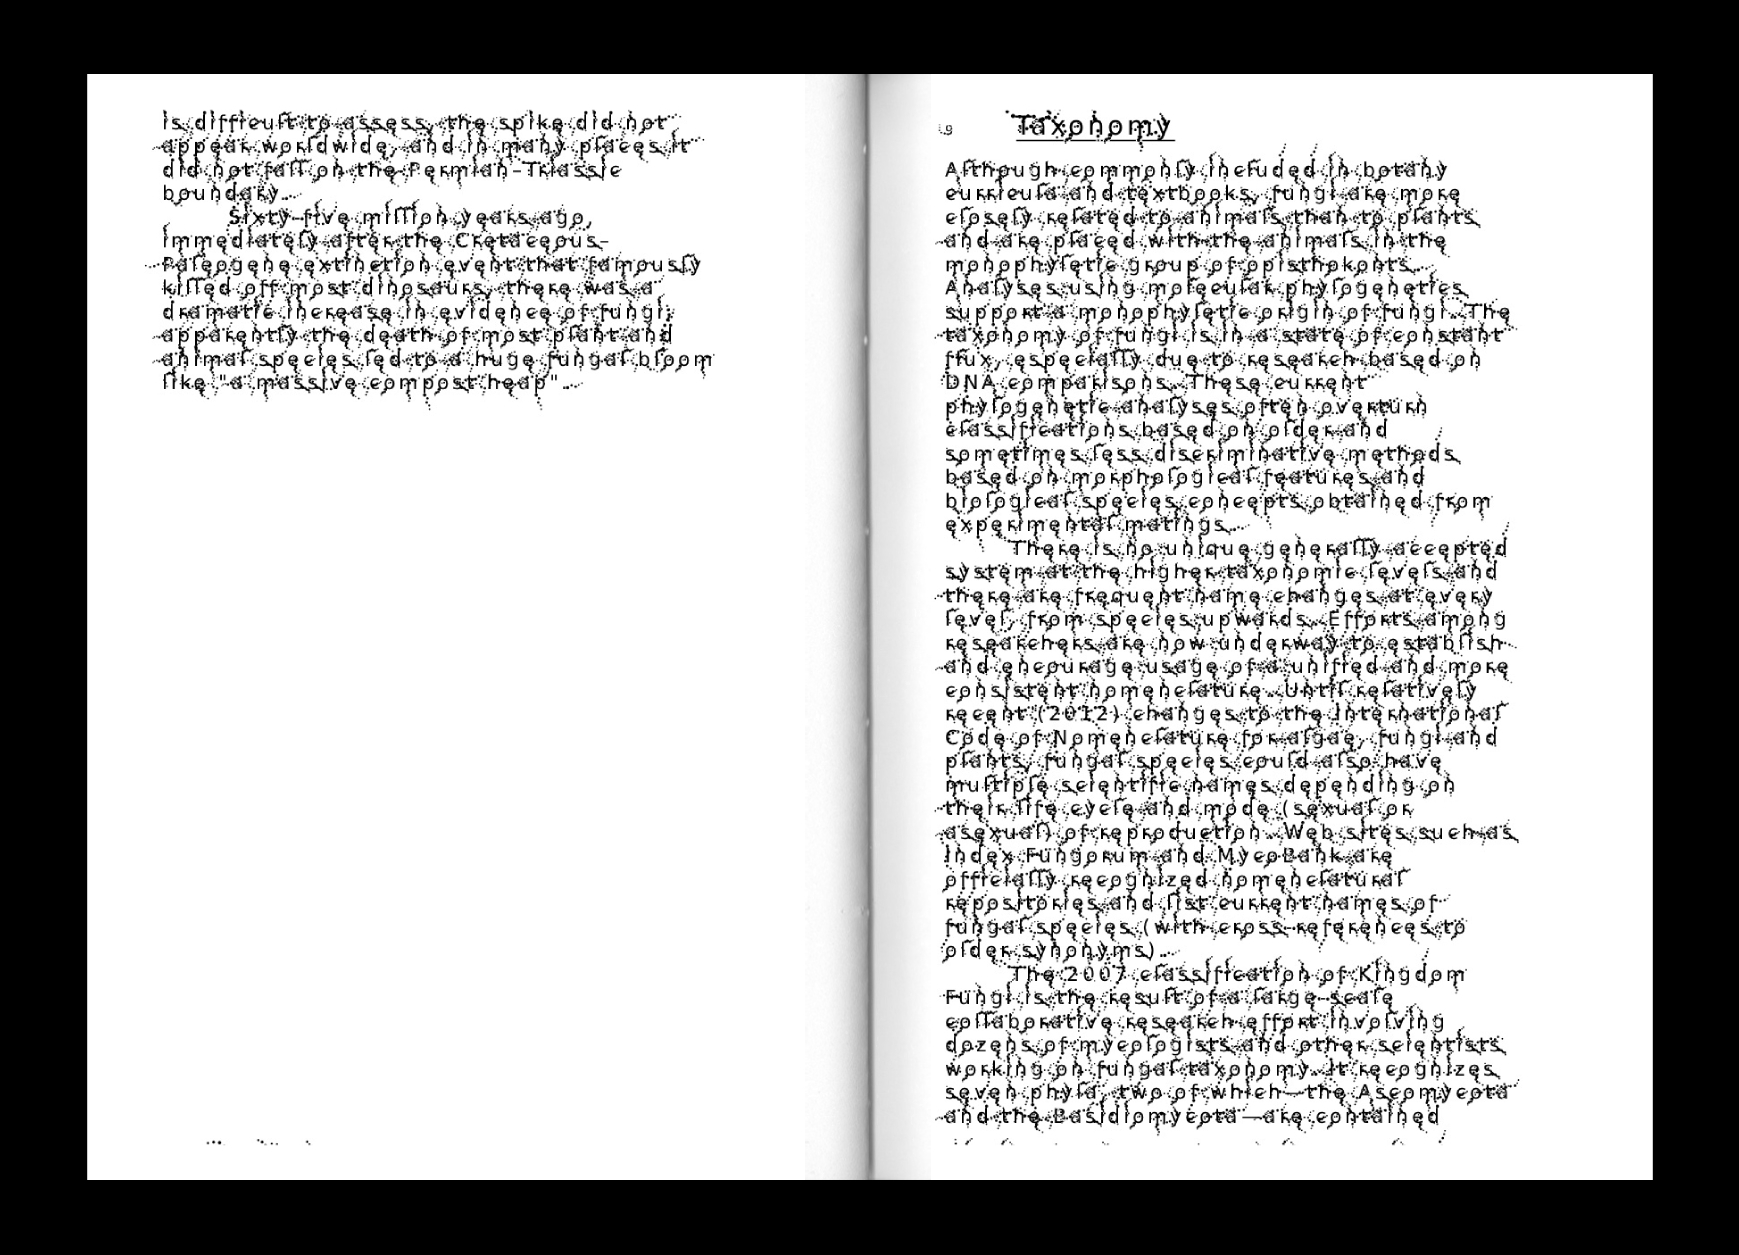 is difficult to assess, the spike did not
appear worldwide, and in many places it
did not fall on the Permian–Triassic
boundary.
Sixty-five million years ago,
immediately after the Cretaceous–
Paleogene extinction event that famously
killed off most dinosaurs, there was a
dramatic increase in evidence of fungi;
apparently the death of most plant and
animal species led to a huge fungal bloom
like "a massive compost heap".
Taxonomy
Although commonly included in botany
curricula and textbooks, fungi are more
closely related to animals than to plants
and are placed with the animals in the
monophyletic group of opisthokonts.
Analyses using molecular phylogenetics
support a monophyletic origin of fungi. The
taxonomy of fungi is in a state of constant
flux, especially due to research based on
DNA comparisons. These current
phylogenetic analyses often overturn
classifications based on older and
sometimes less discriminative methods
based on morphological features and
biological species concepts obtained from
experimental matings.
There is no unique generally accepted
system at the higher taxonomic levels and
there are frequent name changes at every
level, from species upwards. Efforts among
researchers are now underway to establish
and encourage usage of a unified and more
consistent nomenclature. Until relatively
recent (2012) changes to the International
Code of Nomenclature for algae, fungi and
plants, fungal species could also have
multiple scientific names depending on
their life cycle and mode (sexual or
asexual) of reproduction. Web sites such as
Index Fungorum and MycoBank are
officially recognized nomenclatural
repositories and list current names of
fungal species (with cross-references to
older synonyms).
The 2007 classification of Kingdom
Fungi is the result of a large-scale
collaborative research effort involving
dozens of mycologists and other scientists
working on fungal taxonomy. It recognizes
seven phyla, two of which—the Ascomycota
and the Basidiomycota—are contained